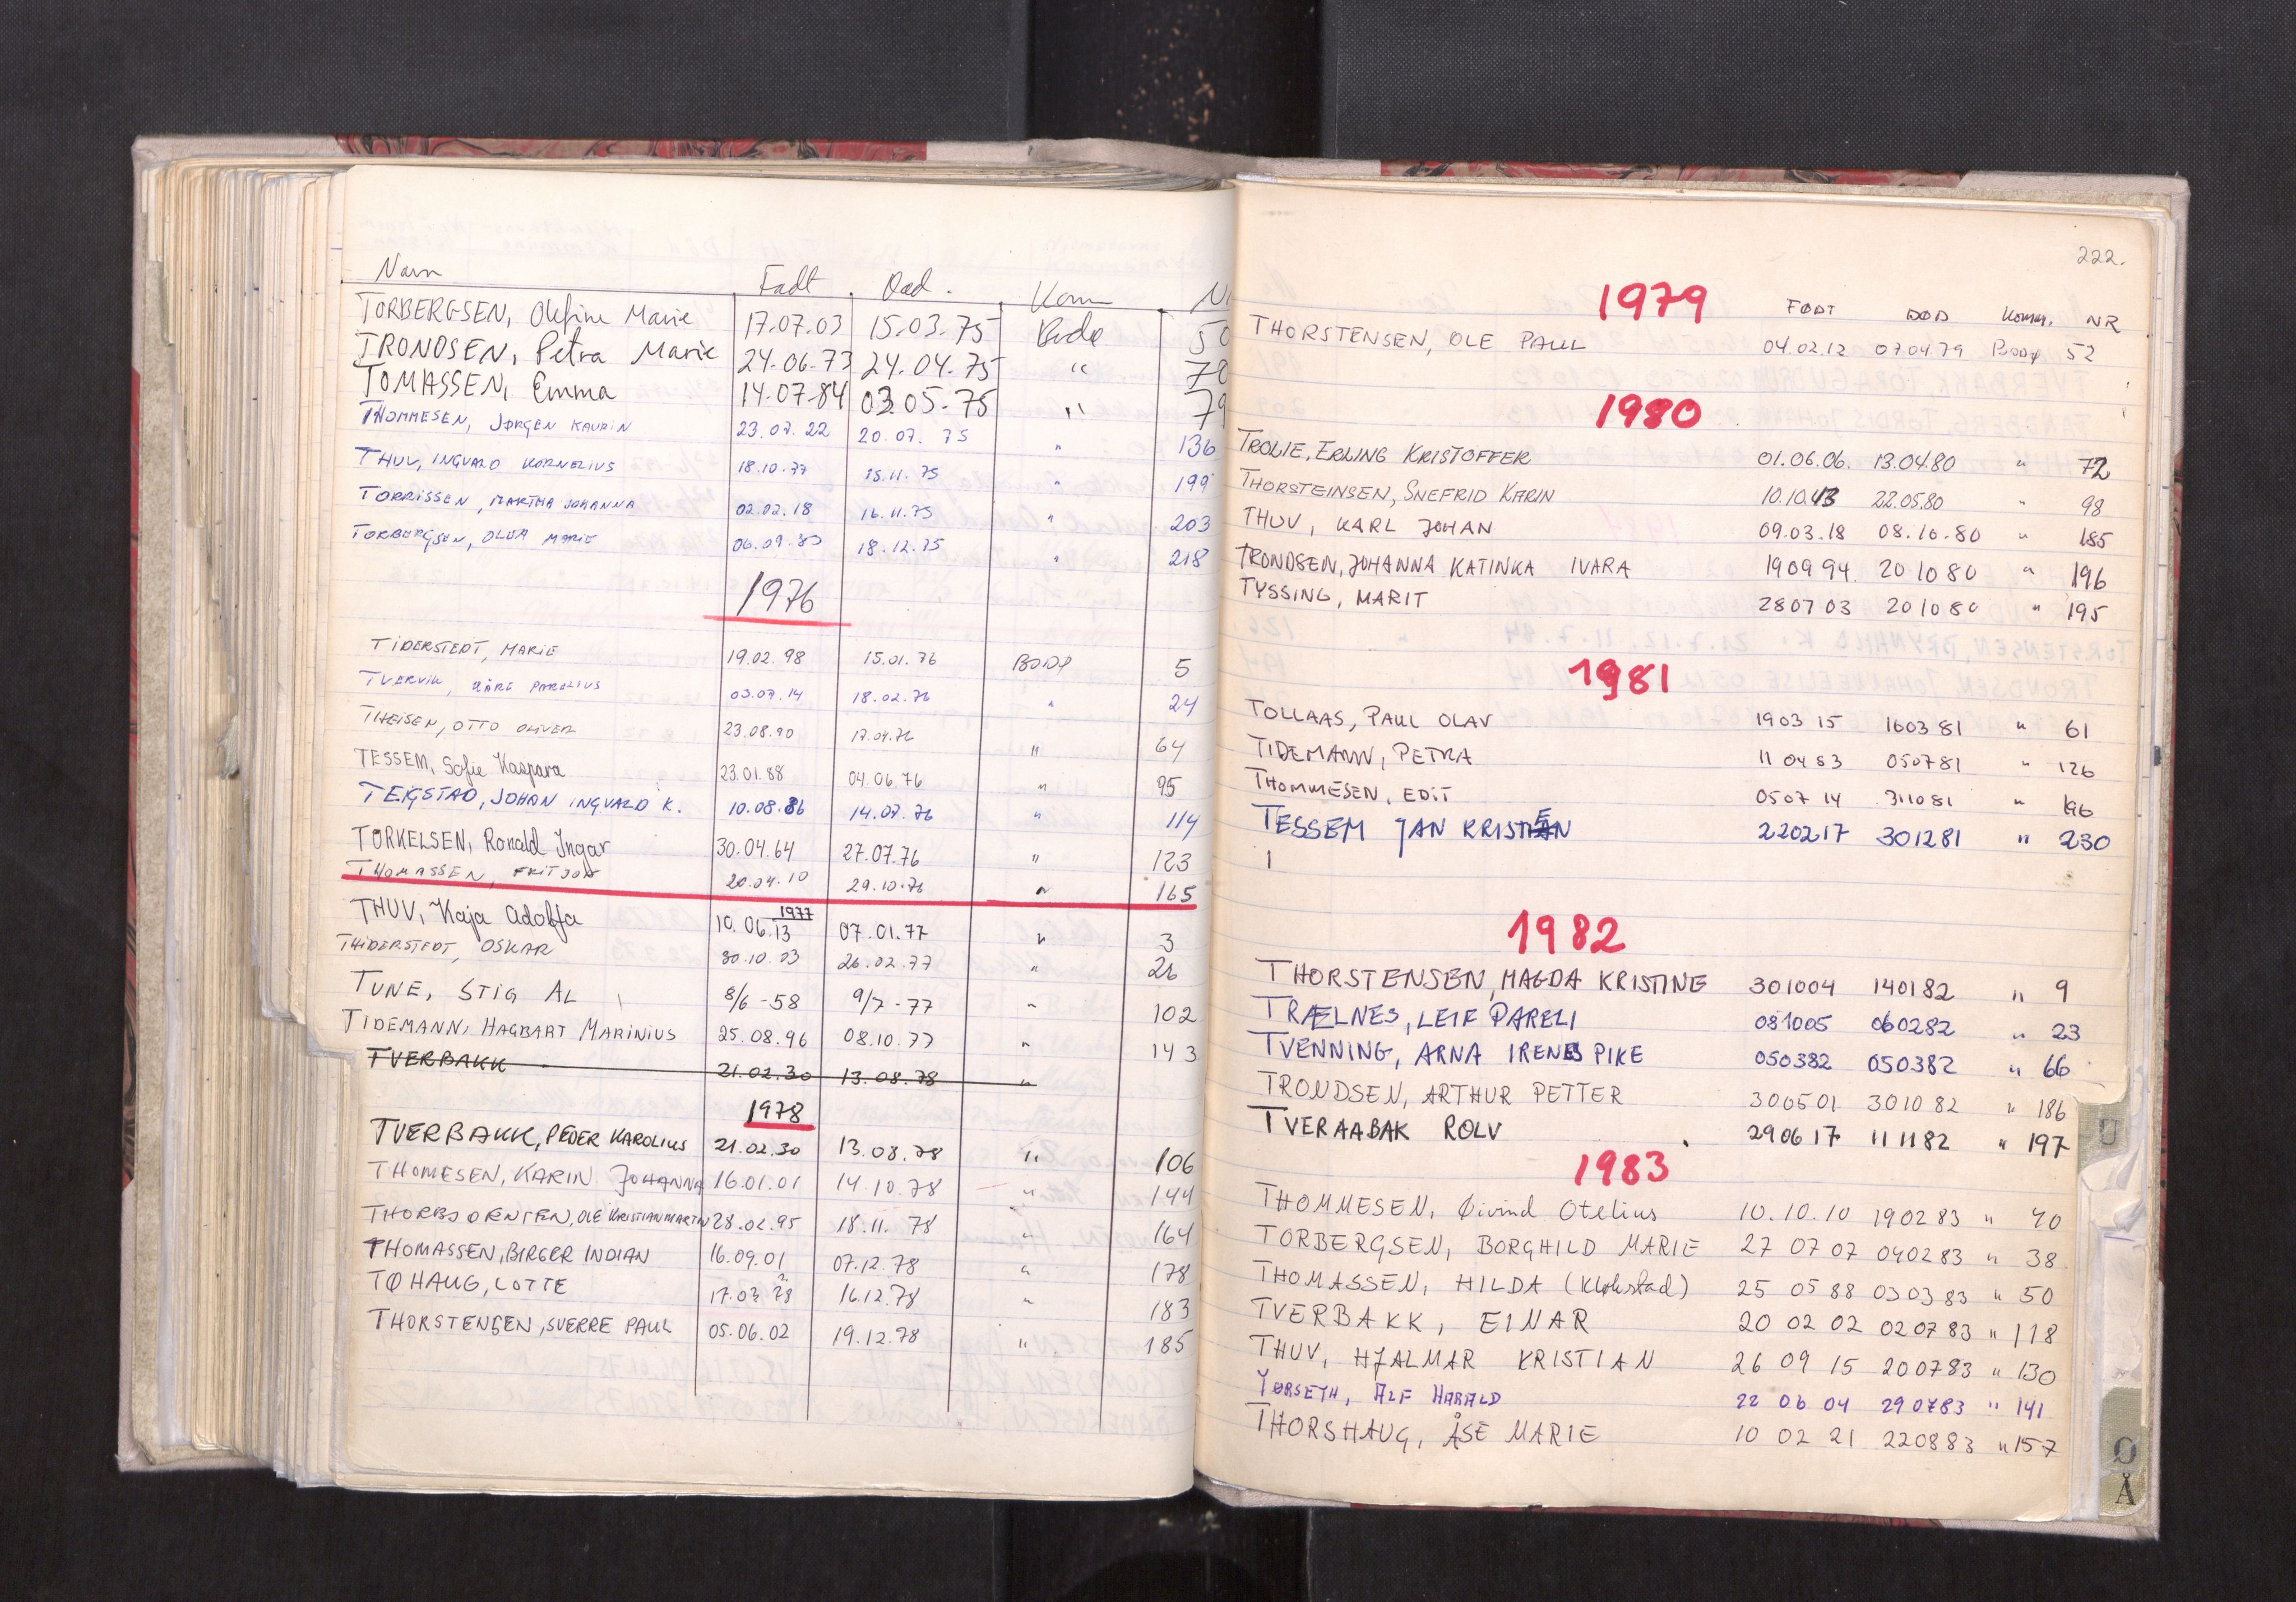 Navn Født Død. Kom Nr
TORBERGSEN, Olefine Marie 17.07.03 15.03.75 Bodø 50
TRONDSEN, Petra Marie 24.06.73 24.04.75 " 78
TOMASSEN, Emma 14.07.84 03.05.75 " 79
THOMMESEN, JØRGEN KAURIN 23.07.22 20.07.75 " 136
THUV, INGVALD KORNELIUS 18.10.77 15.11.75 " 199
TORRISSEN, MARTHA JOHANNA 02.02.18 16.11.75 " 203
TORBERGSEN, OLGA MARIE 06.09.83 18.12.75 " 218
1976
TIDERSTEDT, MARIE 19.02.98 15.01.76 BODØ 5
TVERVIK, KÅRE PARELIUS 03.07.14 18.02.76 " 24
THEISEN, OTTO OLIVER 23.08.90 17.04.76 " 64
TESSEM, Sofie Kaspara 23.01.88 04.06.76 " 95
TEIGSTAD, JOHAN INGVALD K. 10.08.86 14.07.76 " 114
TORKELSEN, Ronald Ingar 30.04.64 27.07.76 " 123
THOMASSEN, FRITJOF 20.04.10 29.10.76 " 165
1977
THUV, Kaja Adolfa 10.06.13 07.01.77 " 3
THIDERSTEDT, OSKAR 30.10.03 26.02.77 " 26
TUNE, STIG AL 8/6-58 9/7-77 " 102
TIDEMANN, HAGBART MARINIUS 25.08.96 08.10.77 " 143
TVERBAKK 21.02.30 13.08.78 "
1978
TVERBAKK, PEDER KAROLIUS 21.02.30 13.08.78 " 106
THOMESEN, KARIN JOHANNA 16.01.01 14.10.78 " 144
THORBJØRNSEN, OLE KRISTIAN MARTIN 28.02.95 18.11.78 " 164
THOMASSEN, BIRGER INDIAN 16.09.01 07.12.78 " 178
TØHAUG, LOTTE 17.03.78 16.12.78 " 183
THORSTENSEN, SVERRE PAUL 05.06.02 19.12.78 " 185
222.
1979 FØDT DØD Komm. NR
THORSTENSEN, OLE PAUL 04.02.12 07.04.79 Bodø 52
1980
TROLIE, ERLING KRISTOFFER 01.06.06. 13.04.80 " 72
THORSTEINSEN, SNEFRID KARIN 10.10.43 22.05.80 " 98
THUV, KARL JOHAN 09.03.18 08.10.80 " 185
TRONDSEN, JOHANNA KATINKA IVARA 190994 201080 " 196
TYSSING, MARIT 280703 201080 " 195
1981
TOLLAAS, PAUL OLAV 190315 160381 " 61
TIDEMANN, PETRA 110483 050781 " 126
THOMMESEN, EDIT 050714 311081 " 196
TESSEM JAN KRISTIEN 220217 301281 " 230
1982
THORSTENSEN, MAGDA KRISTINE 301004 140182 " 9
TRÆLNES, LEIF PARELI 081005 060282 " 23
TVENNING, ARNA IRENES PIKE 050382 050382 " 66
TRONDSEN, ARTHUR PETTER 300501 301082 " 186
TVERAABAK ROLV 290617 111182 " 197
1983
THOMMESEN, Øivind Otelius 10.10.10 190283 " 40
TORBERGSEN, BORGHILD MARIE 27 07 07 040283 " 38
THOMASSEN, HILDA (Klokstad) 25 05 88 030383 " 50
TVERBAKK, EINAR 20 02 02 020783 " 118
THUV, HJALMAR KRISTIAN 26 09 15 200783 " 130
TØRSETH, ALF HARALD 22 06 04 290783 " 141
THORSHAUG, ÅSE MARIE 10 02 21 220883 " 157
U
Ø
Å